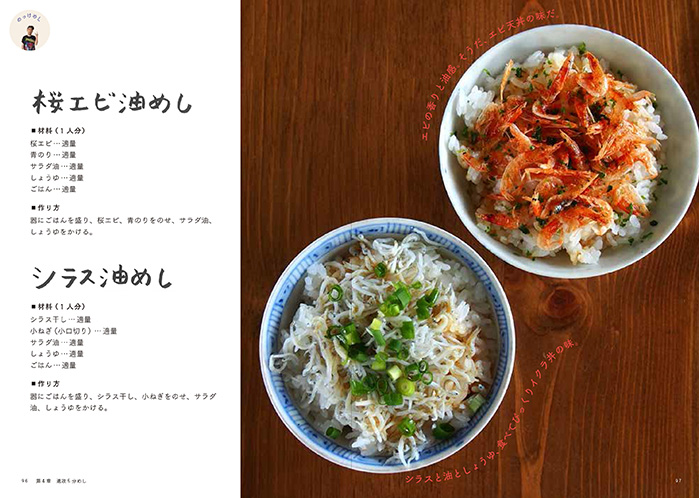 のっけめし
桜エビ油めし
■材料（1人分）
桜エビ…適量
青のり…適量
サラダ油…適量
しょうゆ…適量
ごはん…適量
■作り方
器にごはんを盛り、桜エビ、青のりをのせ、サラダ油、
しょうゆをかける。
シラス油めし
■材料（1人分）
シラス干し…適量
小ねぎ（小口切り）…適量
サラダ油…適量
しょうゆ…適量
ごはん…適量
■作り方
器にごはんを盛り、シラス干し、小ねぎをのせ、サラダ
油、しょうゆをかける。
96　第4章　速攻5分めし
エビの香りと油感。そうだ、エビ天丼の味だ。
シラスと油としょうゆ、食べてびっくりイクラ丼の味。
97